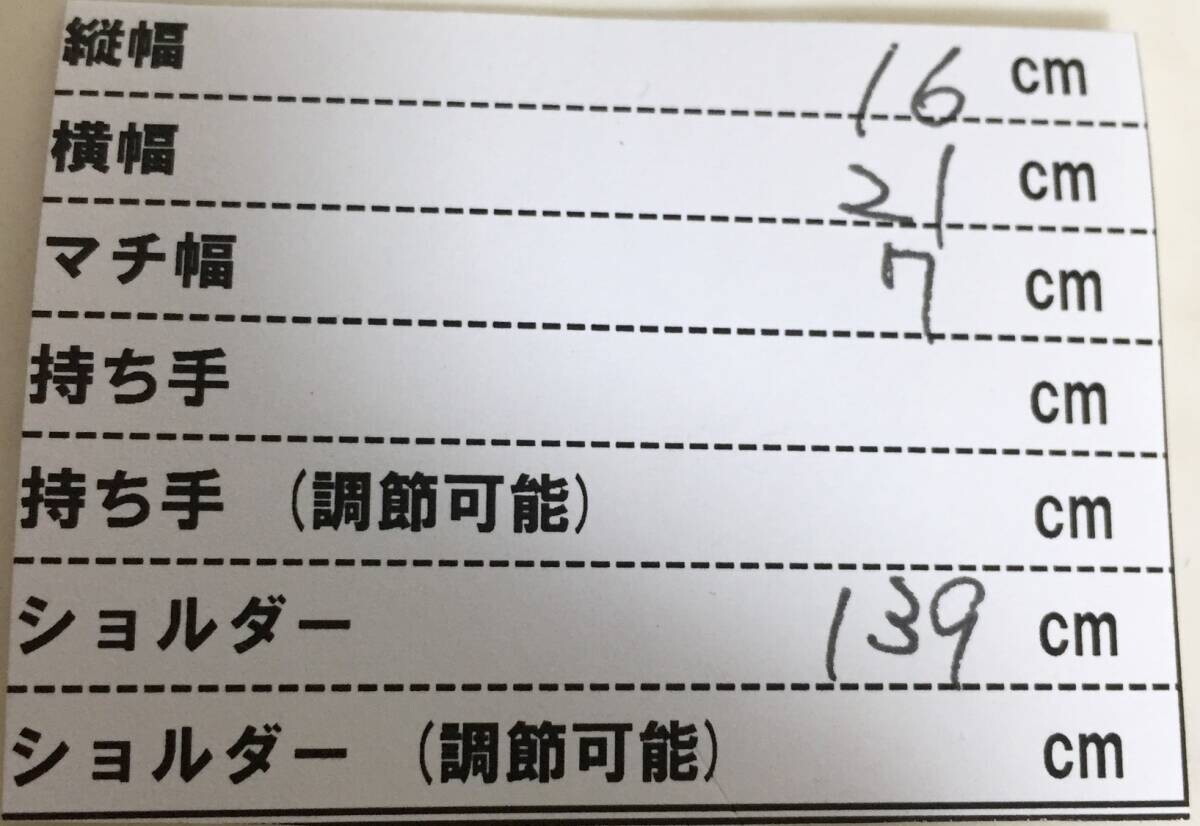 縦幅 16 cm
横幅 21 cm
マチ幅 7 cm
持ち手 cm
持ち手 (調節可能) cm
ショルダー 139 cm
ショルダー (調節可能) cm